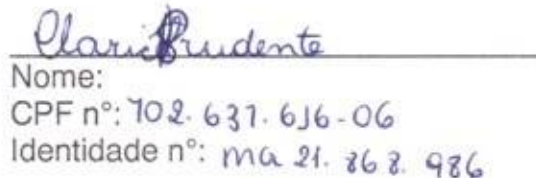 Clarice Prudente
Nome:
CPF nº: 702.637.616-06
Identidade nº: MG 21.868.986